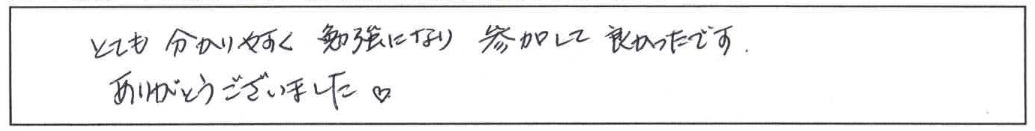 とても 分かりやすく 勉強になり 参加して 良かったです.
ありがとうございました♡